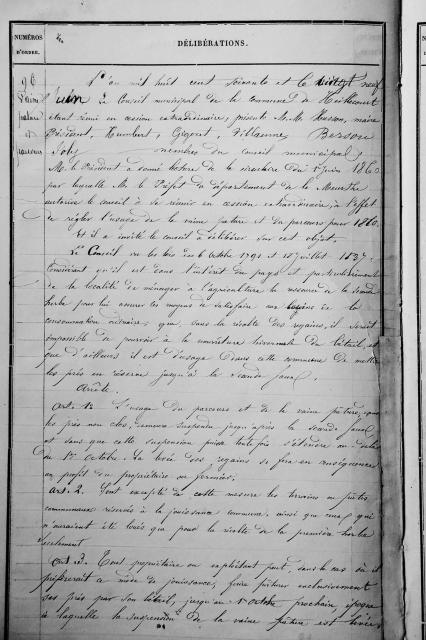 NUMÉROS D'ORDRE.
DÉLIBÉRATIONS.
96
Vaine
pature
et
parcours
L'an mil huit cent soixante et le vingt neuf
Juin Le Conseil municipal de la commune de
étant réuni en session extraordinaire, présents M.M. Husson, maire
Président, Humbert, Gigout, Villaume, Bersou
Joly membres du conseil municipal;
M. le Président a donné lecture de la circulaire du 1er Juin 1860
par laquelle M. le Préfet du département de la Meurthe
autorise le conseil à se réunir en session extraordinaire, à l'effet
de régler l'usage de la vaine pature et du parcours pour 1860
Et il a invité le conseil à délibérer sur cet objet.
Le Conseil vu les lois des 6 Octobre 1791 et 18 juillet 1837.
Considérant qu'il est dans l'intérêt du pays et particulièrement
de la localité de ménager à l'agriculture la ressource de la seconde
herbe pour lui assurer les moyens de satisfaire aux besoins de la
consommation ordinaire; que, sans la récolte des regains, il serait
impossible de pourvoir à la nourriture hivernale du bétail, et
que d'ailleurs il est d'usage dans cette commune de mettre
les prés en réserve jusqu'à la seconde faux,
Arrête.
Art. 1er L'usage du parcours et de la vaine pâture, dans
les prés non clos, demeure suspendu jusqu'après la seconde faux
et sans que cette suspension puisse toutefois s'étendre au delà
du 1er Octobre. La levée des regains se fera en conséquence
au profit du propriétaire ou fermier;
Art. 2. Sont exceptés de cette mesure les terrains ou pâtis
communaux réservés à la jouissance commune, ainsi que ceux qui
n'auraient été loués que pour la récolte de la première herbe
seulement.
Art. 3. Tout propriétaire ou exploitant peut, dans le cas où il
préférerait ce mode de jouissance, faire pâturer exclusivement
ses prés par son bétail, jusqu'au 1er Octobre prochain, époque
à laquelle la suspension de la vaine pâture est levée